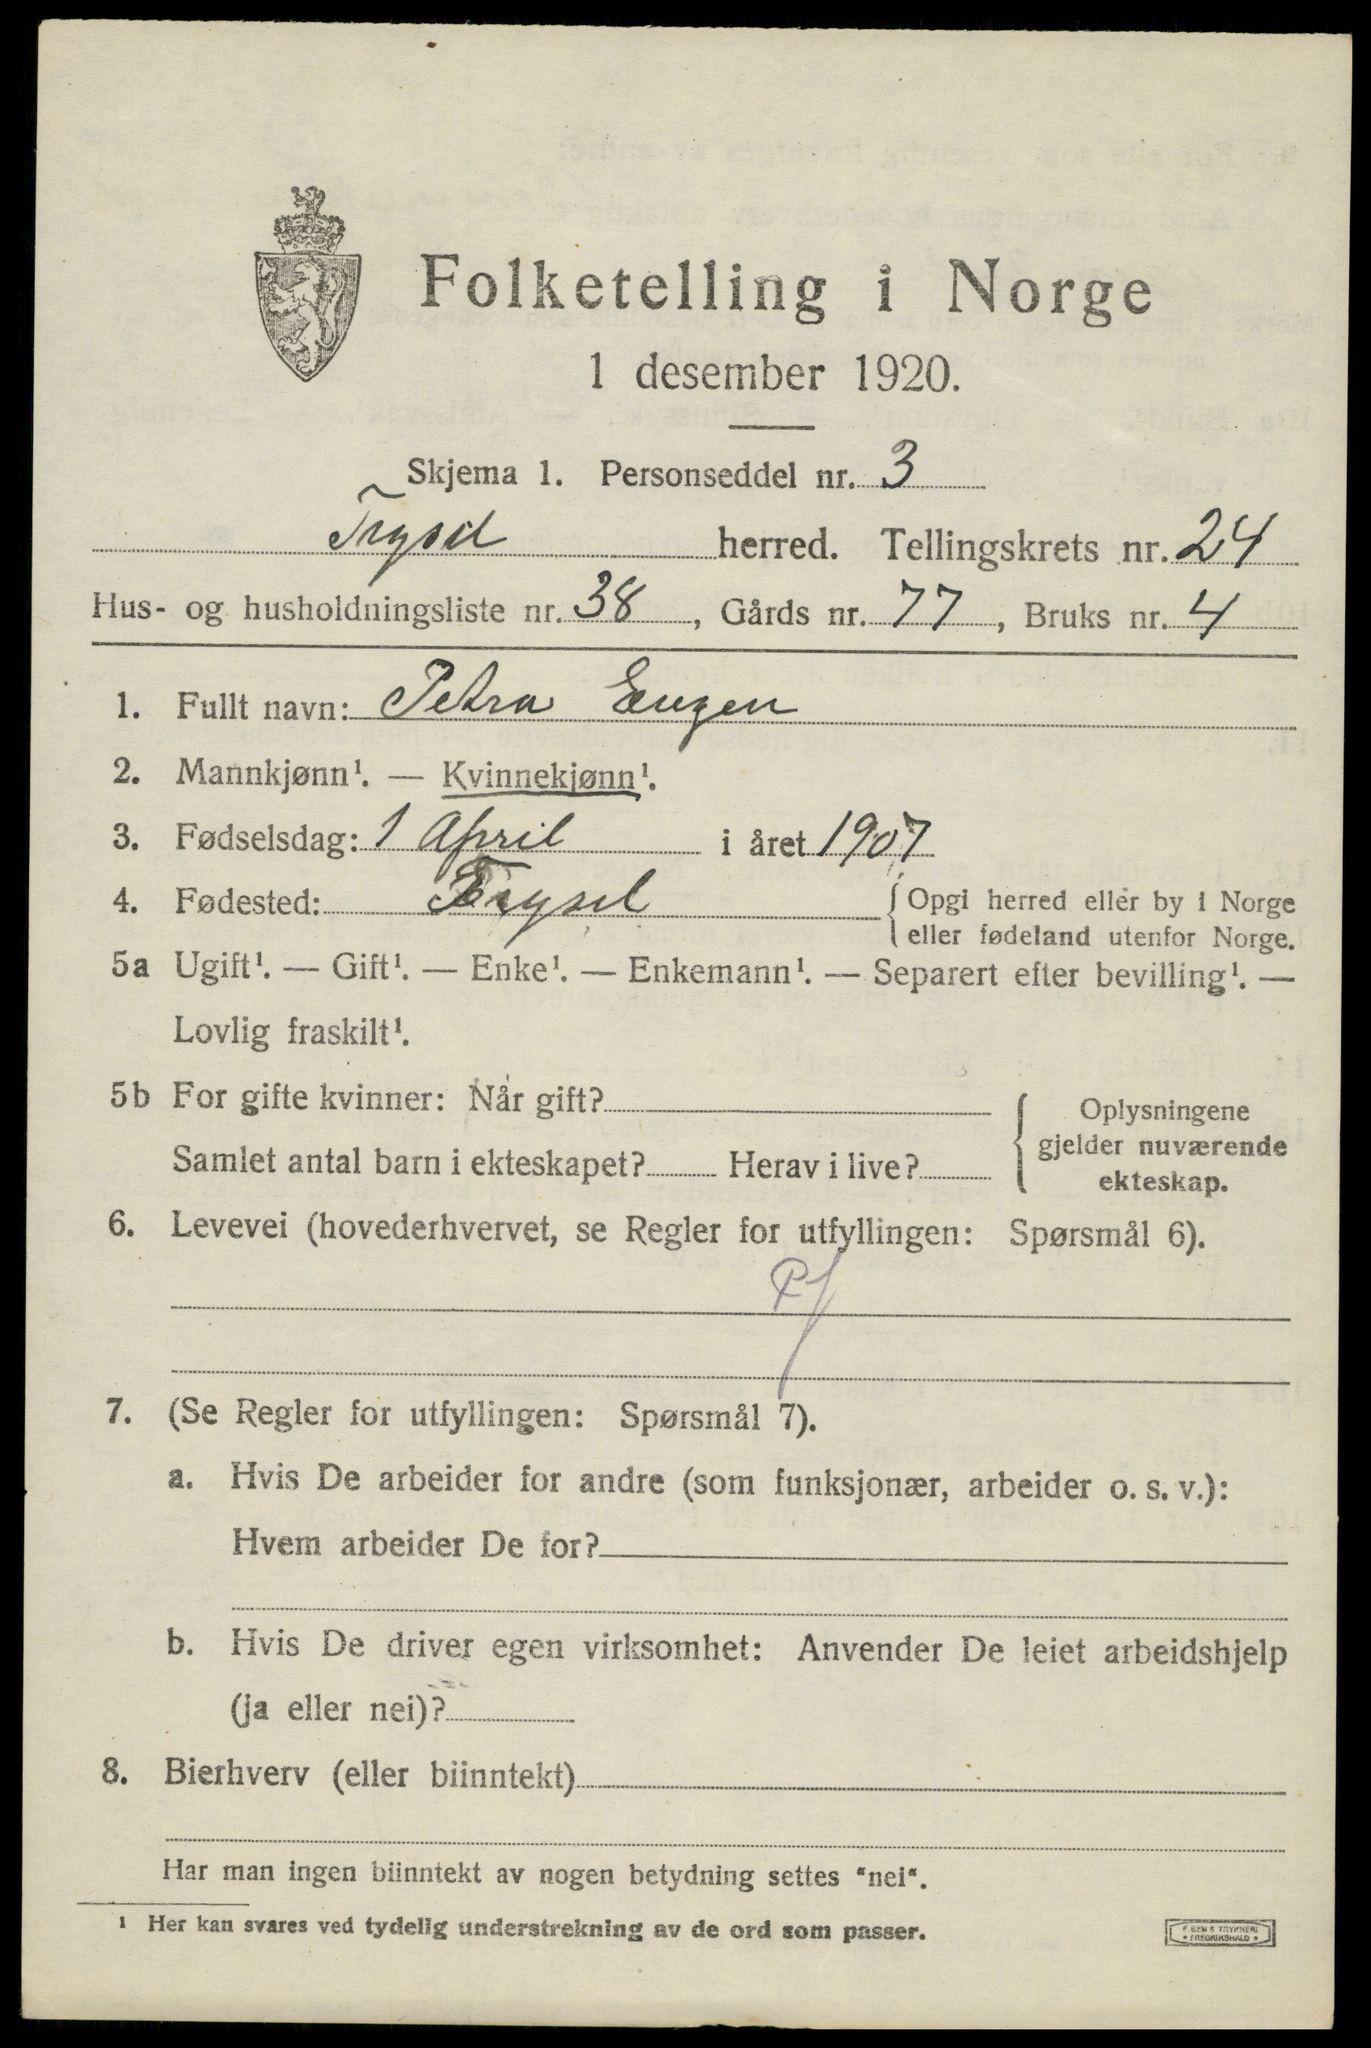 Folketelling i Norge
1 desember 1920.
Skjema 1. Personseddel nr. 3
Trysil herred. Tellingskrets nr. 24
Hus- og husholdningsliste nr. 38, Gårds nr. 77, Bruks nr. 4
1. Fullt navn: Petra Engen
2. Mannkjønn¹. — Kvinnekjønn¹.
3. Fødselsdag: 1 April i året 1907
4. Fødested: Trysil { Opgi herred eller by i Norge
eller fødeland utenfor Norge.
5a Ugift¹. — Gift¹. — Enke¹. — Enkemann¹. — Separert efter bevilling¹. —
Lovlig fraskilt¹.
5b For gifte kvinner: Når gift?
Samlet antal barn i ekteskapet? Herav i live?
{ Oplysningene
gjelder nuværende
ekteskap.
6. Levevei (hovederhvervet, se Regler for utfyllingen: Spørsmål 6).
7. (Se Regler for utfyllingen: Spørsmål 7).
a. Hvis De arbeider for andre (som funksjonær, arbeider o. s. v.):
Hvem arbeider De for?
b. Hvis De driver egen virksomhet: Anvender De leiet arbeidshjelp
(ja eller nei)?
8. Bierhverv (eller biinntekt)
Har man ingen biinntekt av nogen betydning settes "nei".
¹ Her kan svares ved tydelig understrekning av de ord som passer.
TRYKKERI
FREDRIKSHALD